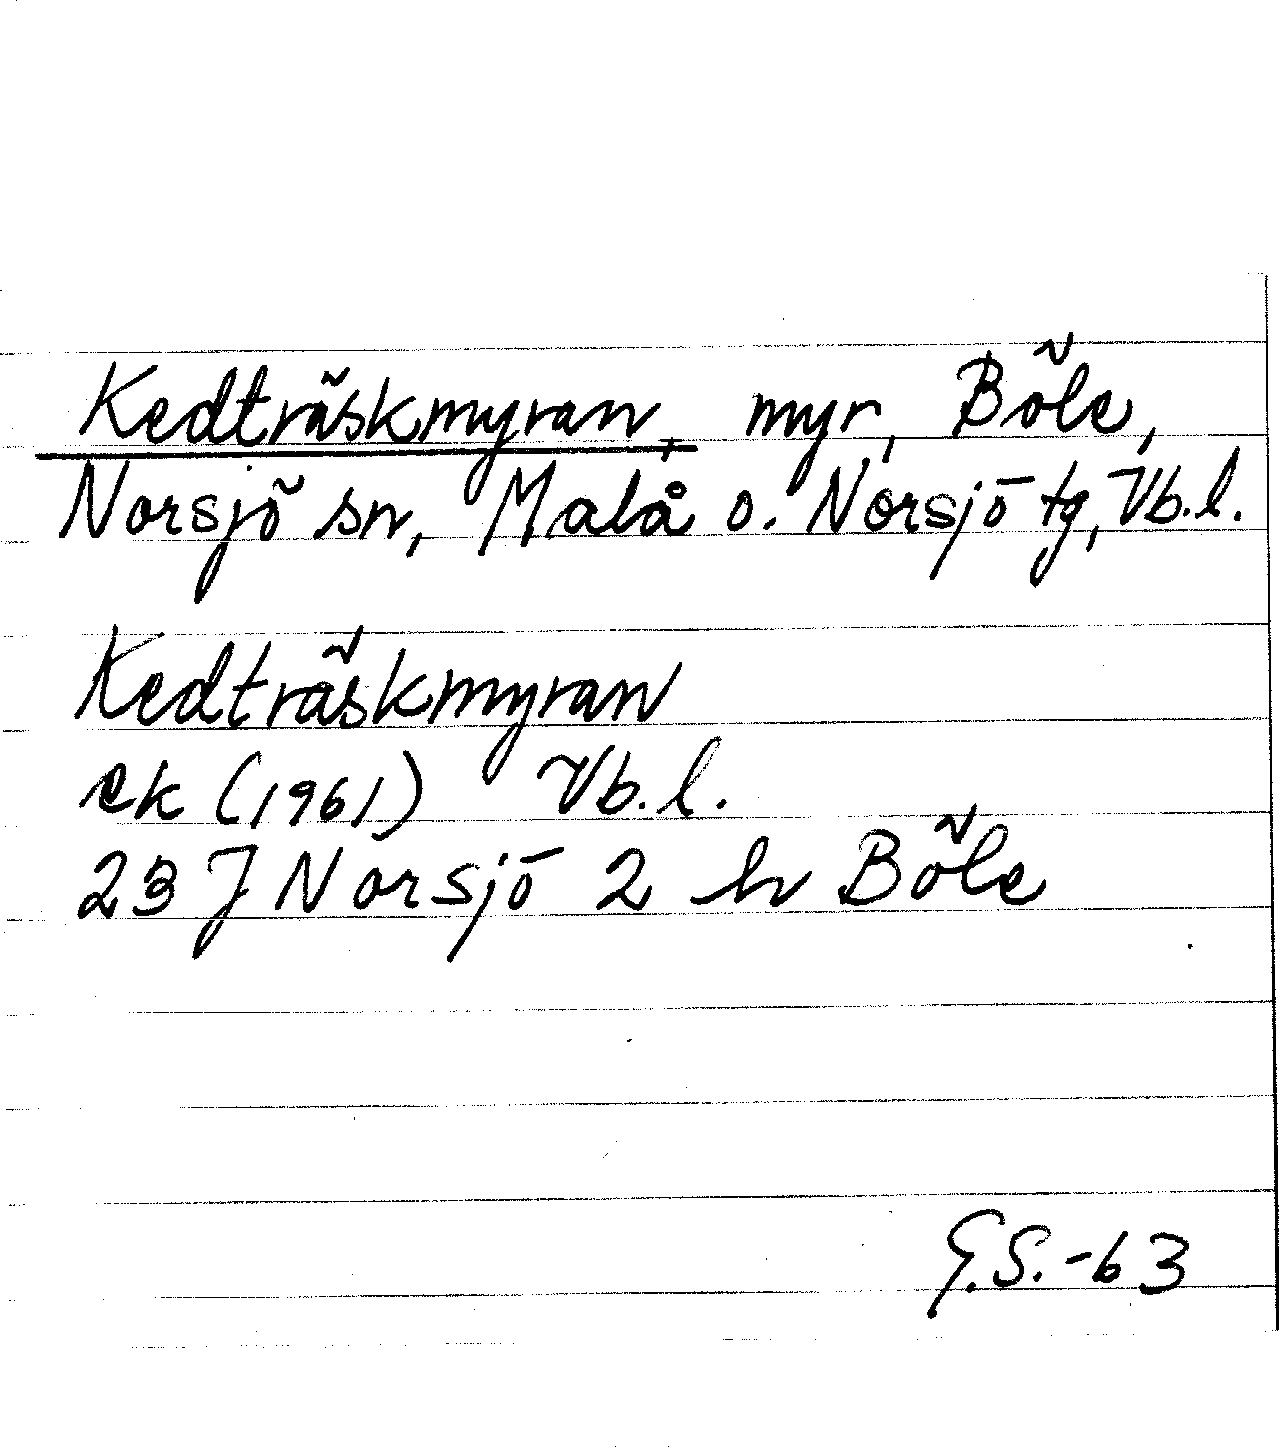 Kedträskmyran, myr, Böle,
Norsjö sn, Malå o. Norsjö tg, Vb.l.
Kedträskmyran
ek (1961) Vb.l.
23 J Norsjö 2 h Böle
G.S.-63